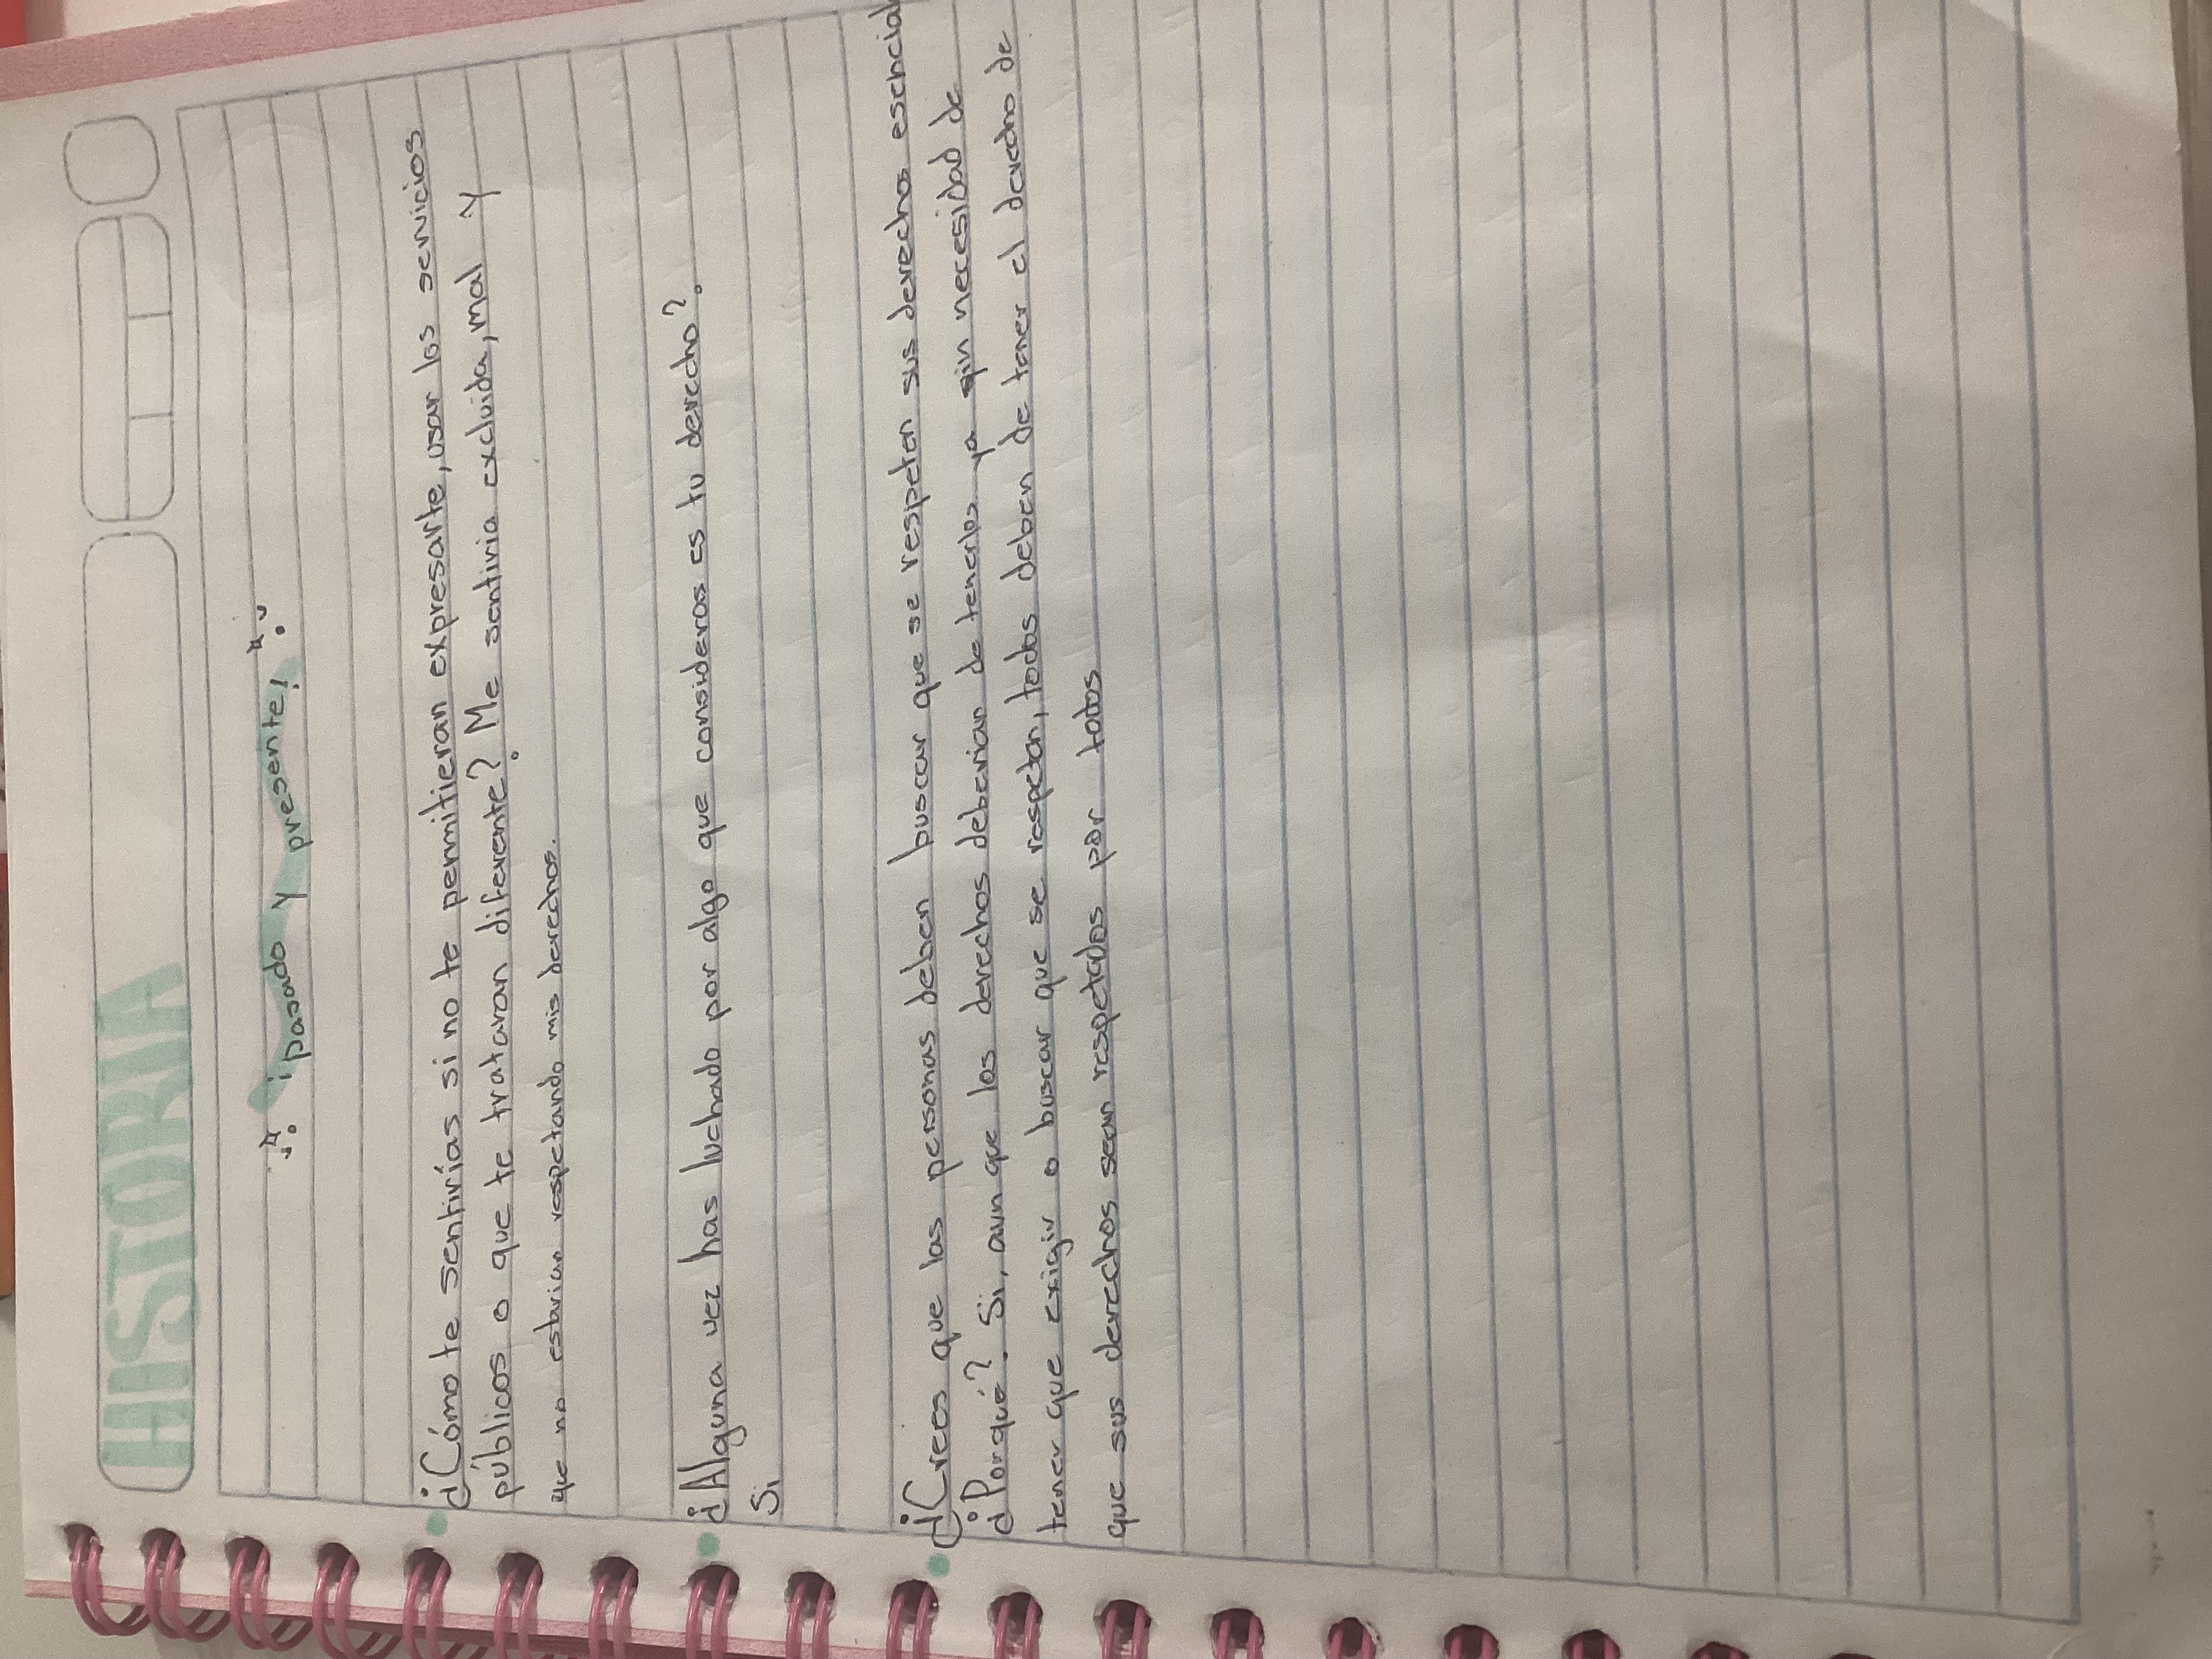 HISTORIA
¡pasado y presente!
¿Cómo te sentirías si no te permitieran expresarte, usar los servicios
públicos o que te trataran diferente? Me sentiria excluida, mal y
que no estarian respetando mis derechos.
¿Alguna vez has luchado por algo que consideras es tu derecho?.
Si
¿Crees que las personas deben buscar que se respeten sus derechos esencial
¿Porqué?. Si, aun que los derechos deberian de tenerlos ya sin necesidad de
tener que exigir o buscar que se respetan, todos deben de tener el derecho de
que sus derechos sean respetados por todos